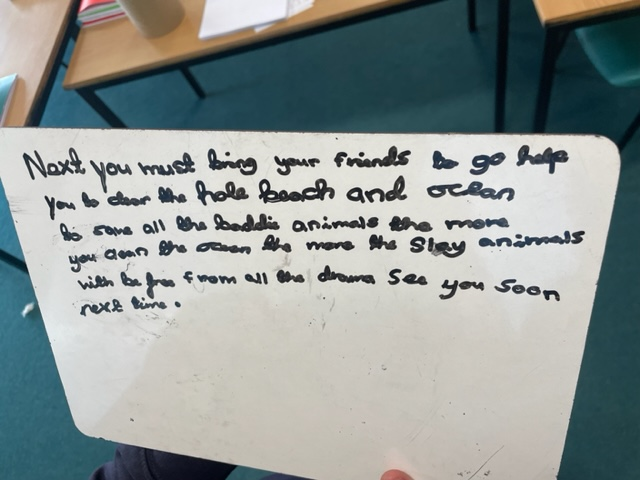 Next you must bring your friends to go help
you to clear the hole beach and ocean
to save all the baddie animals the more
you clean the ocean the more the Slay animals
with be free from all the drama See you Soon
next time.